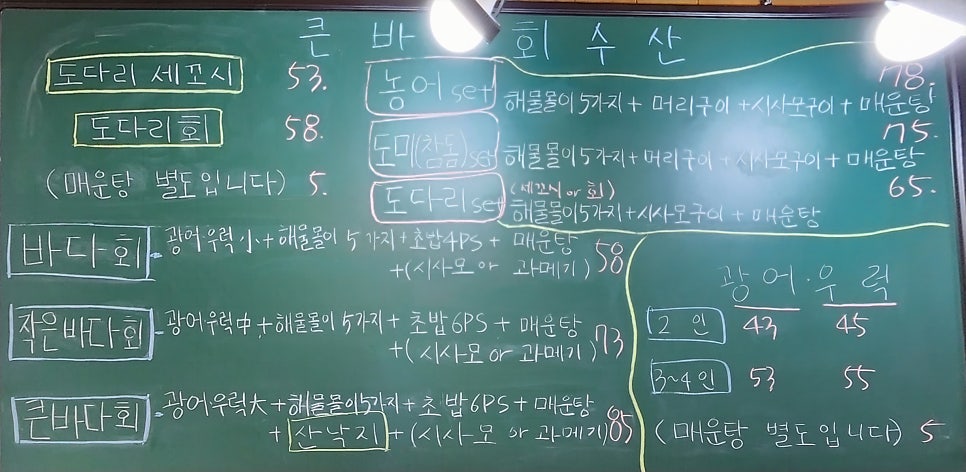 큰 바 회 수 산
도다리 세꼬시 53.
도다리회 58.
(매운탕 별도입니다) 5.
농어 set 78.
해물몰이 5가지 + 머리구이 + 시사모구이 + 매운탕
도미(참돔) set 75.
해물몰이 5가지 + 머리구이 + 시사모구이 + 매운탕
도다리 set (세꼬시 or 회) 65.
해물몰이 5가지 + 시사모구이 + 매운탕
바다회 - 광어우럭 小 + 해물몰이 5가지 + 초밥 4PS + 매운탕
+ (시사모 or 과메기) 58
작은바다회 - 광어우럭 中 + 해물몰이 5가지 + 초밥 6PS + 매운탕
+ (시사모 or 과메기) 73
큰바다회 - 광어우럭 大 + 해물몰이 5가지 + 초밥 6PS + 매운탕
+ 산낙지 + (시사모 or 과메기) 85
광어 · 우럭
2인 43 45
3~4인 53 55
(매운탕 별도입니다) 5